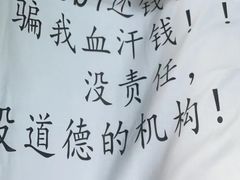 还钱
骗我血汗钱！！
没责任，
没道德的机构！